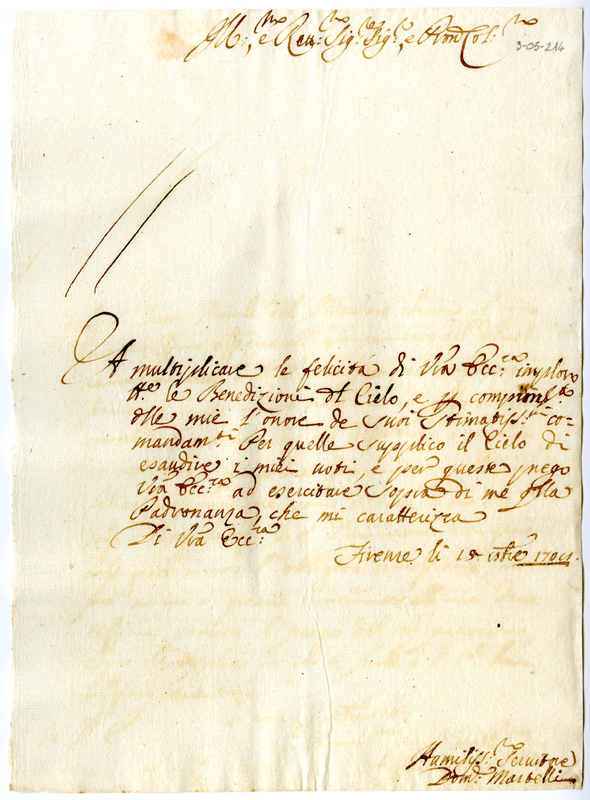 Ill:mo e Reu:mo Sig:re Sig:re e Pron Col:mo
3-05-214
A multiplicare le felicità di Vra Ecc:za imploro
le Benedizioni del Cielo, e p
delle mie l'onore de suoi stimatiss:mi co-
mandam:ti Per quelle supplico il Cielo di
esaudire i miei voti, e per queste prego
Vra Ecc:za ad esercitare sopra di me
Padronanza, che mi caratteriza
Di Vra Ecc:za
Firenze li 15
Humiliss:mo Seruitore
Dom:co Martelli